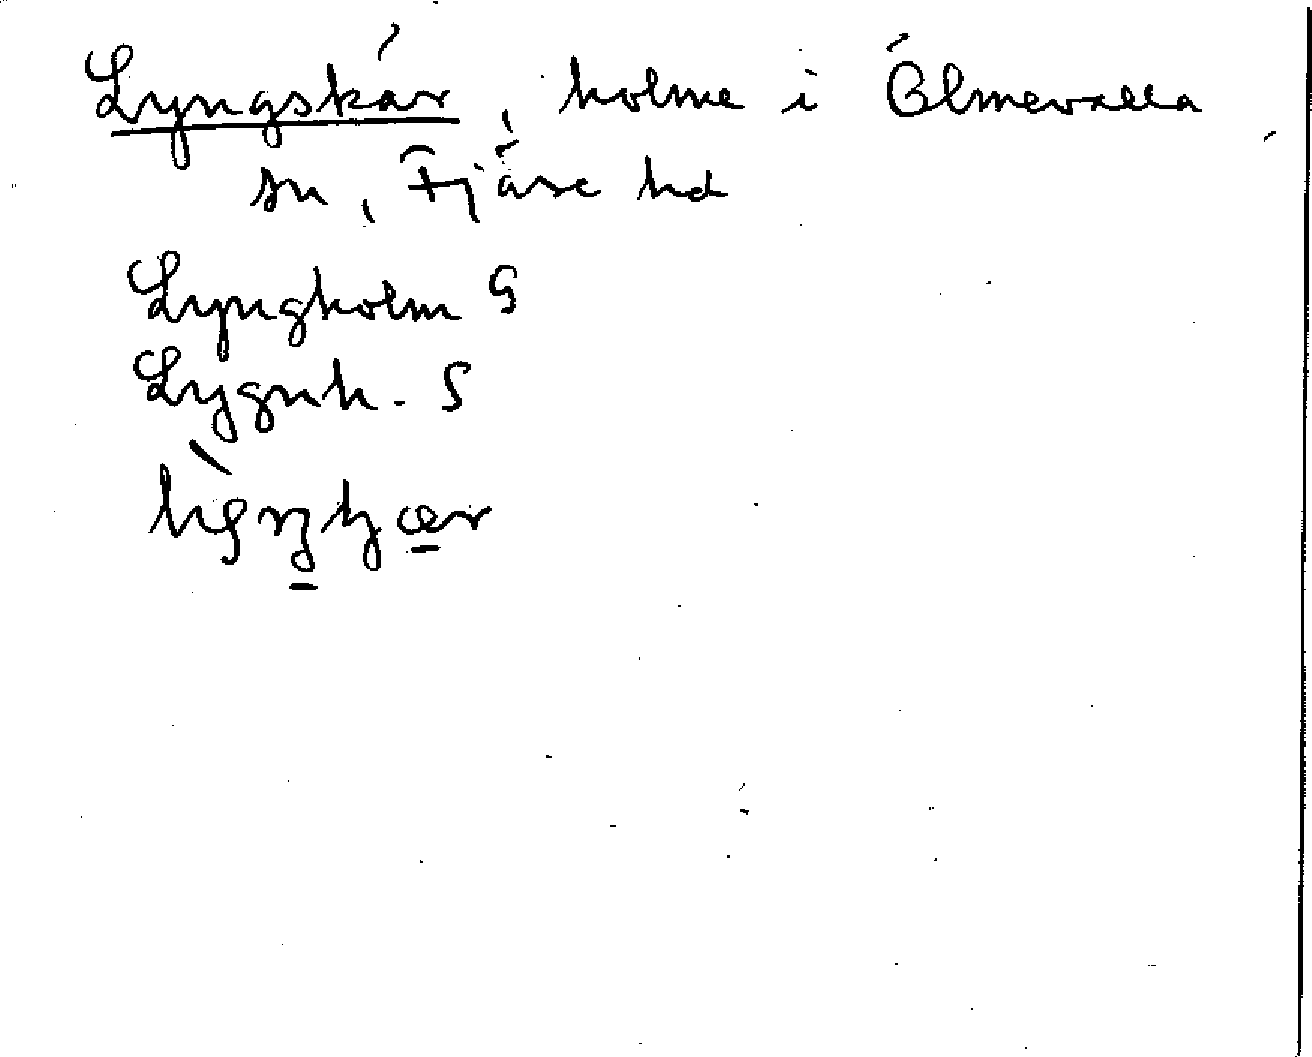 Lyngskär, holme i Ölmevalla
sn, Fjäre hd
Lyngholm G
Lygnh. S